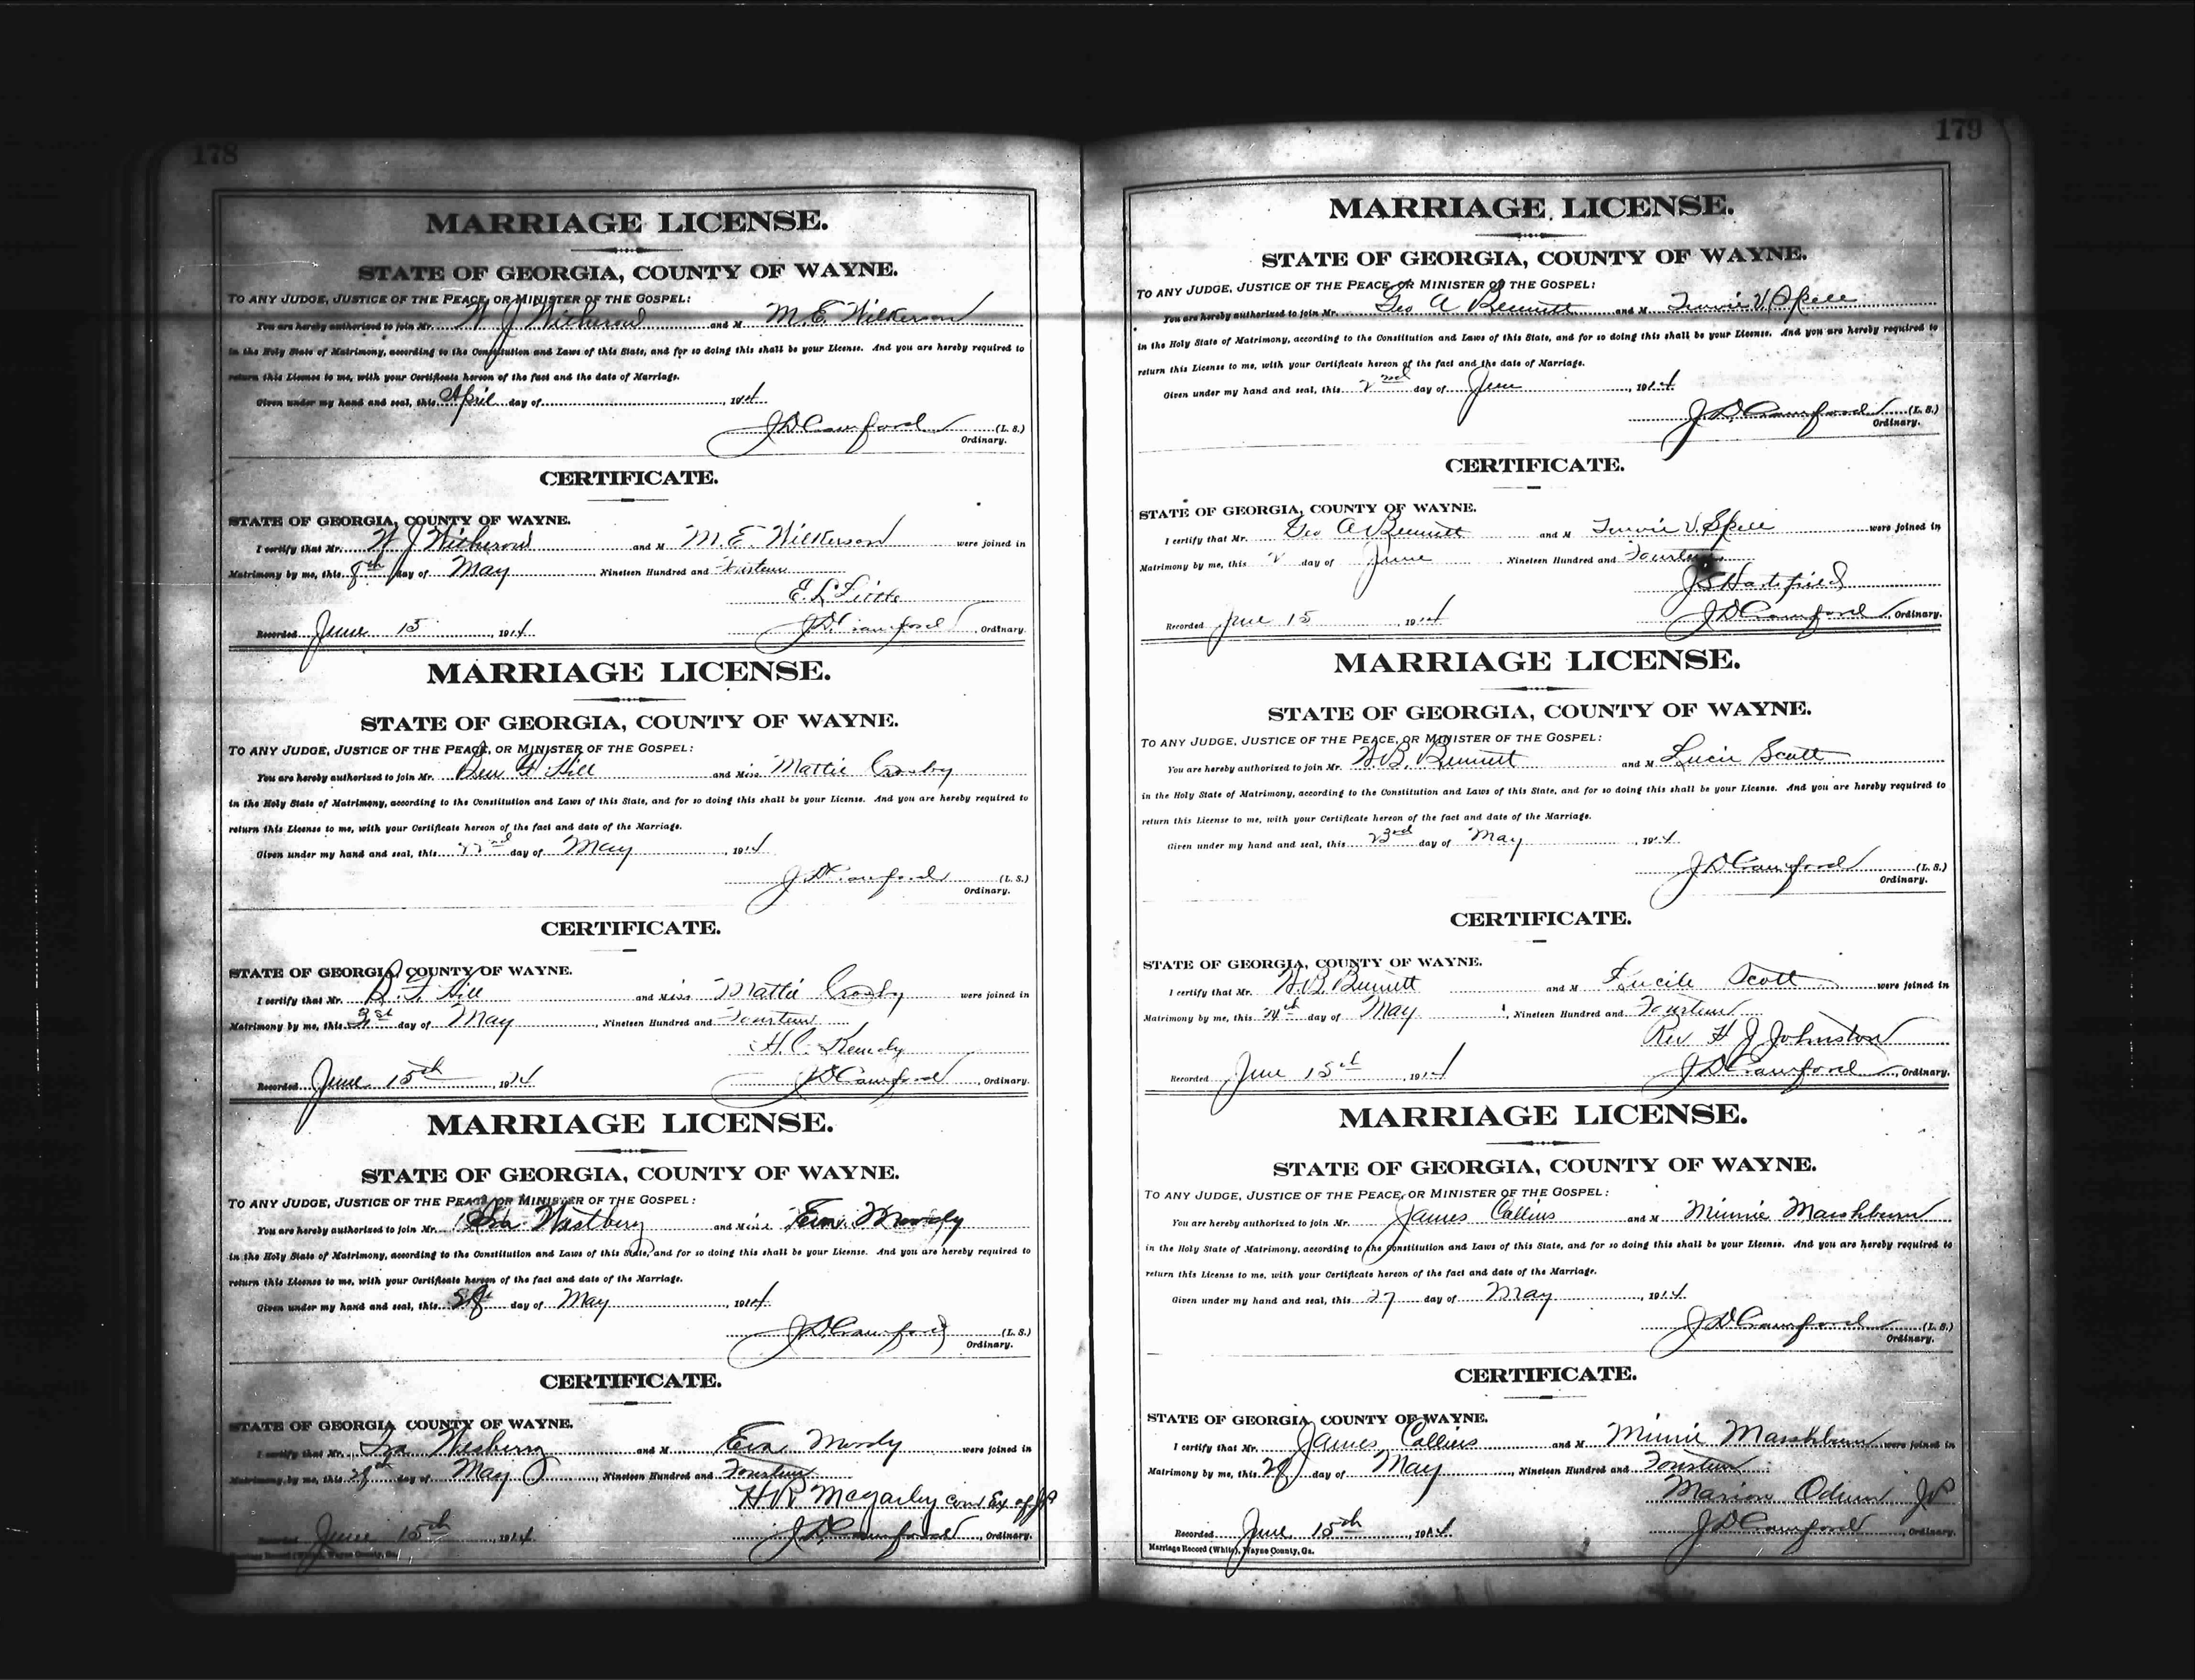 178
MARRIAGE LICENSE.
STATE OF GEORGIA, COUNTY OF WAYNE.
TO ANY JUDGE, JUSTICE OF THE PEACE, OR MINISTER OF THE GOSPEL:
You are hereby authorized to join Mr. W J Witherow and M M.E. Wilkerson
in the Holy State of Matrimony, according to the Constitution and Laws of this State, and for so doing this shall be your License. And you are hereby required to
return this License to me, with your Certificate hereon of the fact and the date of Marriage.
Given under my hand and seal, this April day of , 1914
J D Crawford (L. S.)
Ordinary.
CERTIFICATE.
STATE OF GEORGIA, COUNTY OF WAYNE.
I certify that Mr. W J Witherow and M M.E. Wilkerson were joined in
Matrimony by me, this 8th day of May Nineteen Hundred and
E. L.
Recorded June 15 , 1914 J D Crawford , Ordinary.
MARRIAGE LICENSE.
STATE OF GEORGIA, COUNTY OF WAYNE.
TO ANY JUDGE, JUSTICE OF THE PEACE, OR MINISTER OF THE GOSPEL:
You are hereby authorized to join Mr. Ben F Hill and Miss Mattie Crosby
in the Holy State of Matrimony, according to the Constitution and Laws of this State, and for so doing this shall be your License. And you are hereby required to
return this License to me, with your Certificate hereon of the fact and date of the Marriage.
Given under my hand and seal, this 22nd day of May , 1914
J D Crawford (L. S.)
Ordinary.
CERTIFICATE.
STATE OF GEORGIA, COUNTY OF WAYNE.
I certify that Mr. B. F. Hill and Miss Mattie Crosby were joined in
Matrimony by me, this day of May , Nineteen Hundred and Fourteen
H. C.
Recorded June 15th , 1914 J D Crawford , Ordinary.
MARRIAGE LICENSE.
STATE OF GEORGIA, COUNTY OF WAYNE.
TO ANY JUDGE, JUSTICE OF THE PEACE, OR MINISTER OF THE GOSPEL:
You are hereby authorized to join Mr. Ira Westberry and Miss Eva Moody
in the Holy State of Matrimony, according to the Constitution and Laws of this State, and for so doing this shall be your License. And you are hereby required to
return this License to me, with your Certificate hereon of the fact and date of the Marriage.
Given under my hand and seal, this day of May , 1914
J D Crawford (L. S.)
Ordinary.
CERTIFICATE.
STATE OF GEORGIA, COUNTY OF WAYNE.
I certify that Mr. Ira Wesberry and M Eva Moody were joined in
Matrimony by me, this 28th day of May , Nineteen Hundred and Fourteen
H R Com Ex of JP
Recorded June 15th , 1914 J D Crawford , Ordinary.
Marriage Record (White), Wayne County, Ga.
179
MARRIAGE LICENSE.
STATE OF GEORGIA, COUNTY OF WAYNE.
TO ANY JUDGE, JUSTICE OF THE PEACE, OR MINISTER OF THE GOSPEL:
You are hereby authorized to join Mr. Geo A Bennett and M V. Spell
in the Holy State of Matrimony, according to the Constitution and Laws of this State, and for so doing this shall be your License. And you are hereby required to
return this License to me, with your Certificate hereon of the fact and the date of Marriage.
Given under my hand and seal, this 2nd day of June , 1914
J. D. Crawford (L. S.)
Ordinary.
CERTIFICATE.
STATE OF GEORGIA, COUNTY OF WAYNE.
I certify that Mr. Geo A Bennett and M V. Spell were joined in
Matrimony by me, this 2 day of June , Nineteen Hundred and Fourteen
J S Hatfield
Recorded June 15 , 1914 J D Crawford , Ordinary.
MARRIAGE LICENSE.
STATE OF GEORGIA, COUNTY OF WAYNE.
TO ANY JUDGE, JUSTICE OF THE PEACE, OR MINISTER OF THE GOSPEL:
You are hereby authorized to join Mr. W. B. Bennett and M Lucie Scott
in the Holy State of Matrimony, according to the Constitution and Laws of this State, and for so doing this shall be your License. And you are hereby required to
return this License to me, with your Certificate hereon of the fact and date of the Marriage.
Given under my hand and seal, this 23rd day of May , 1914
J D Crawford (L. S.)
Ordinary.
CERTIFICATE.
STATE OF GEORGIA, COUNTY OF WAYNE.
I certify that Mr. W. B. Bennett and M Lucile Scott were joined in
Matrimony by me, this 24th day of May , Nineteen Hundred and Fourteen
Rev H J Johnston
Recorded June 15th , 1914 J D Crawford , Ordinary.
MARRIAGE LICENSE.
STATE OF GEORGIA, COUNTY OF WAYNE.
TO ANY JUDGE, JUSTICE OF THE PEACE, OR MINISTER OF THE GOSPEL:
You are hereby authorized to join Mr. James Collins and M Minnie Marshburn
in the Holy State of Matrimony, according to the Constitution and Laws of this State, and for so doing this shall be your License. And you are hereby required to
return this License to me, with your Certificate hereon of the fact and date of the Marriage.
Given under my hand and seal, this 27 day of May , 1914
J D Crawford (L. S.)
Ordinary.
CERTIFICATE.
STATE OF GEORGIA, COUNTY OF WAYNE.
I certify that Mr. James Collins and M Minnie Marshburn were joined in
Matrimony by me, this 28 day of May , Nineteen Hundred and Fourteen
Marion Odum JP
Recorded June 15th , 1914 J D Crawford , Ordinary.
Marriage Record (White), Wayne County, Ga.